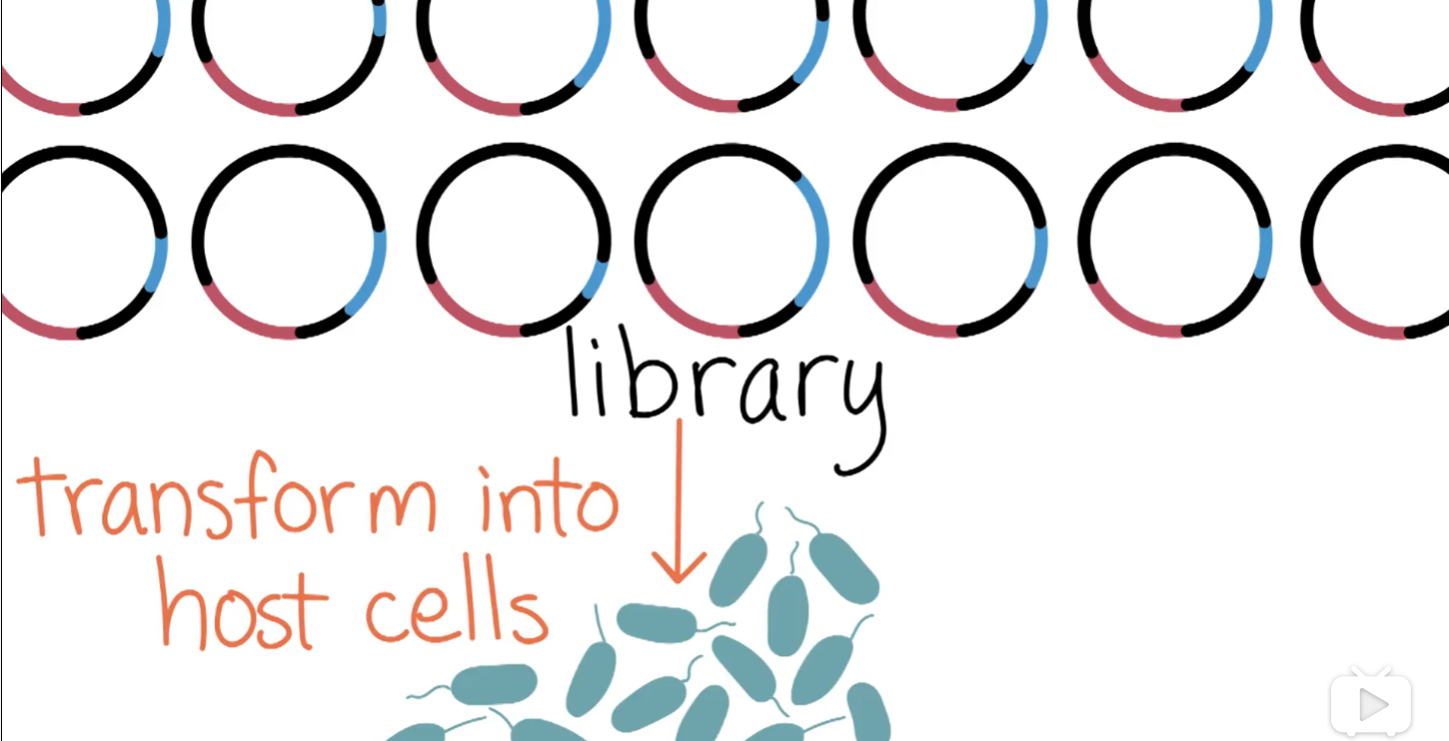 library
transform into
host cells